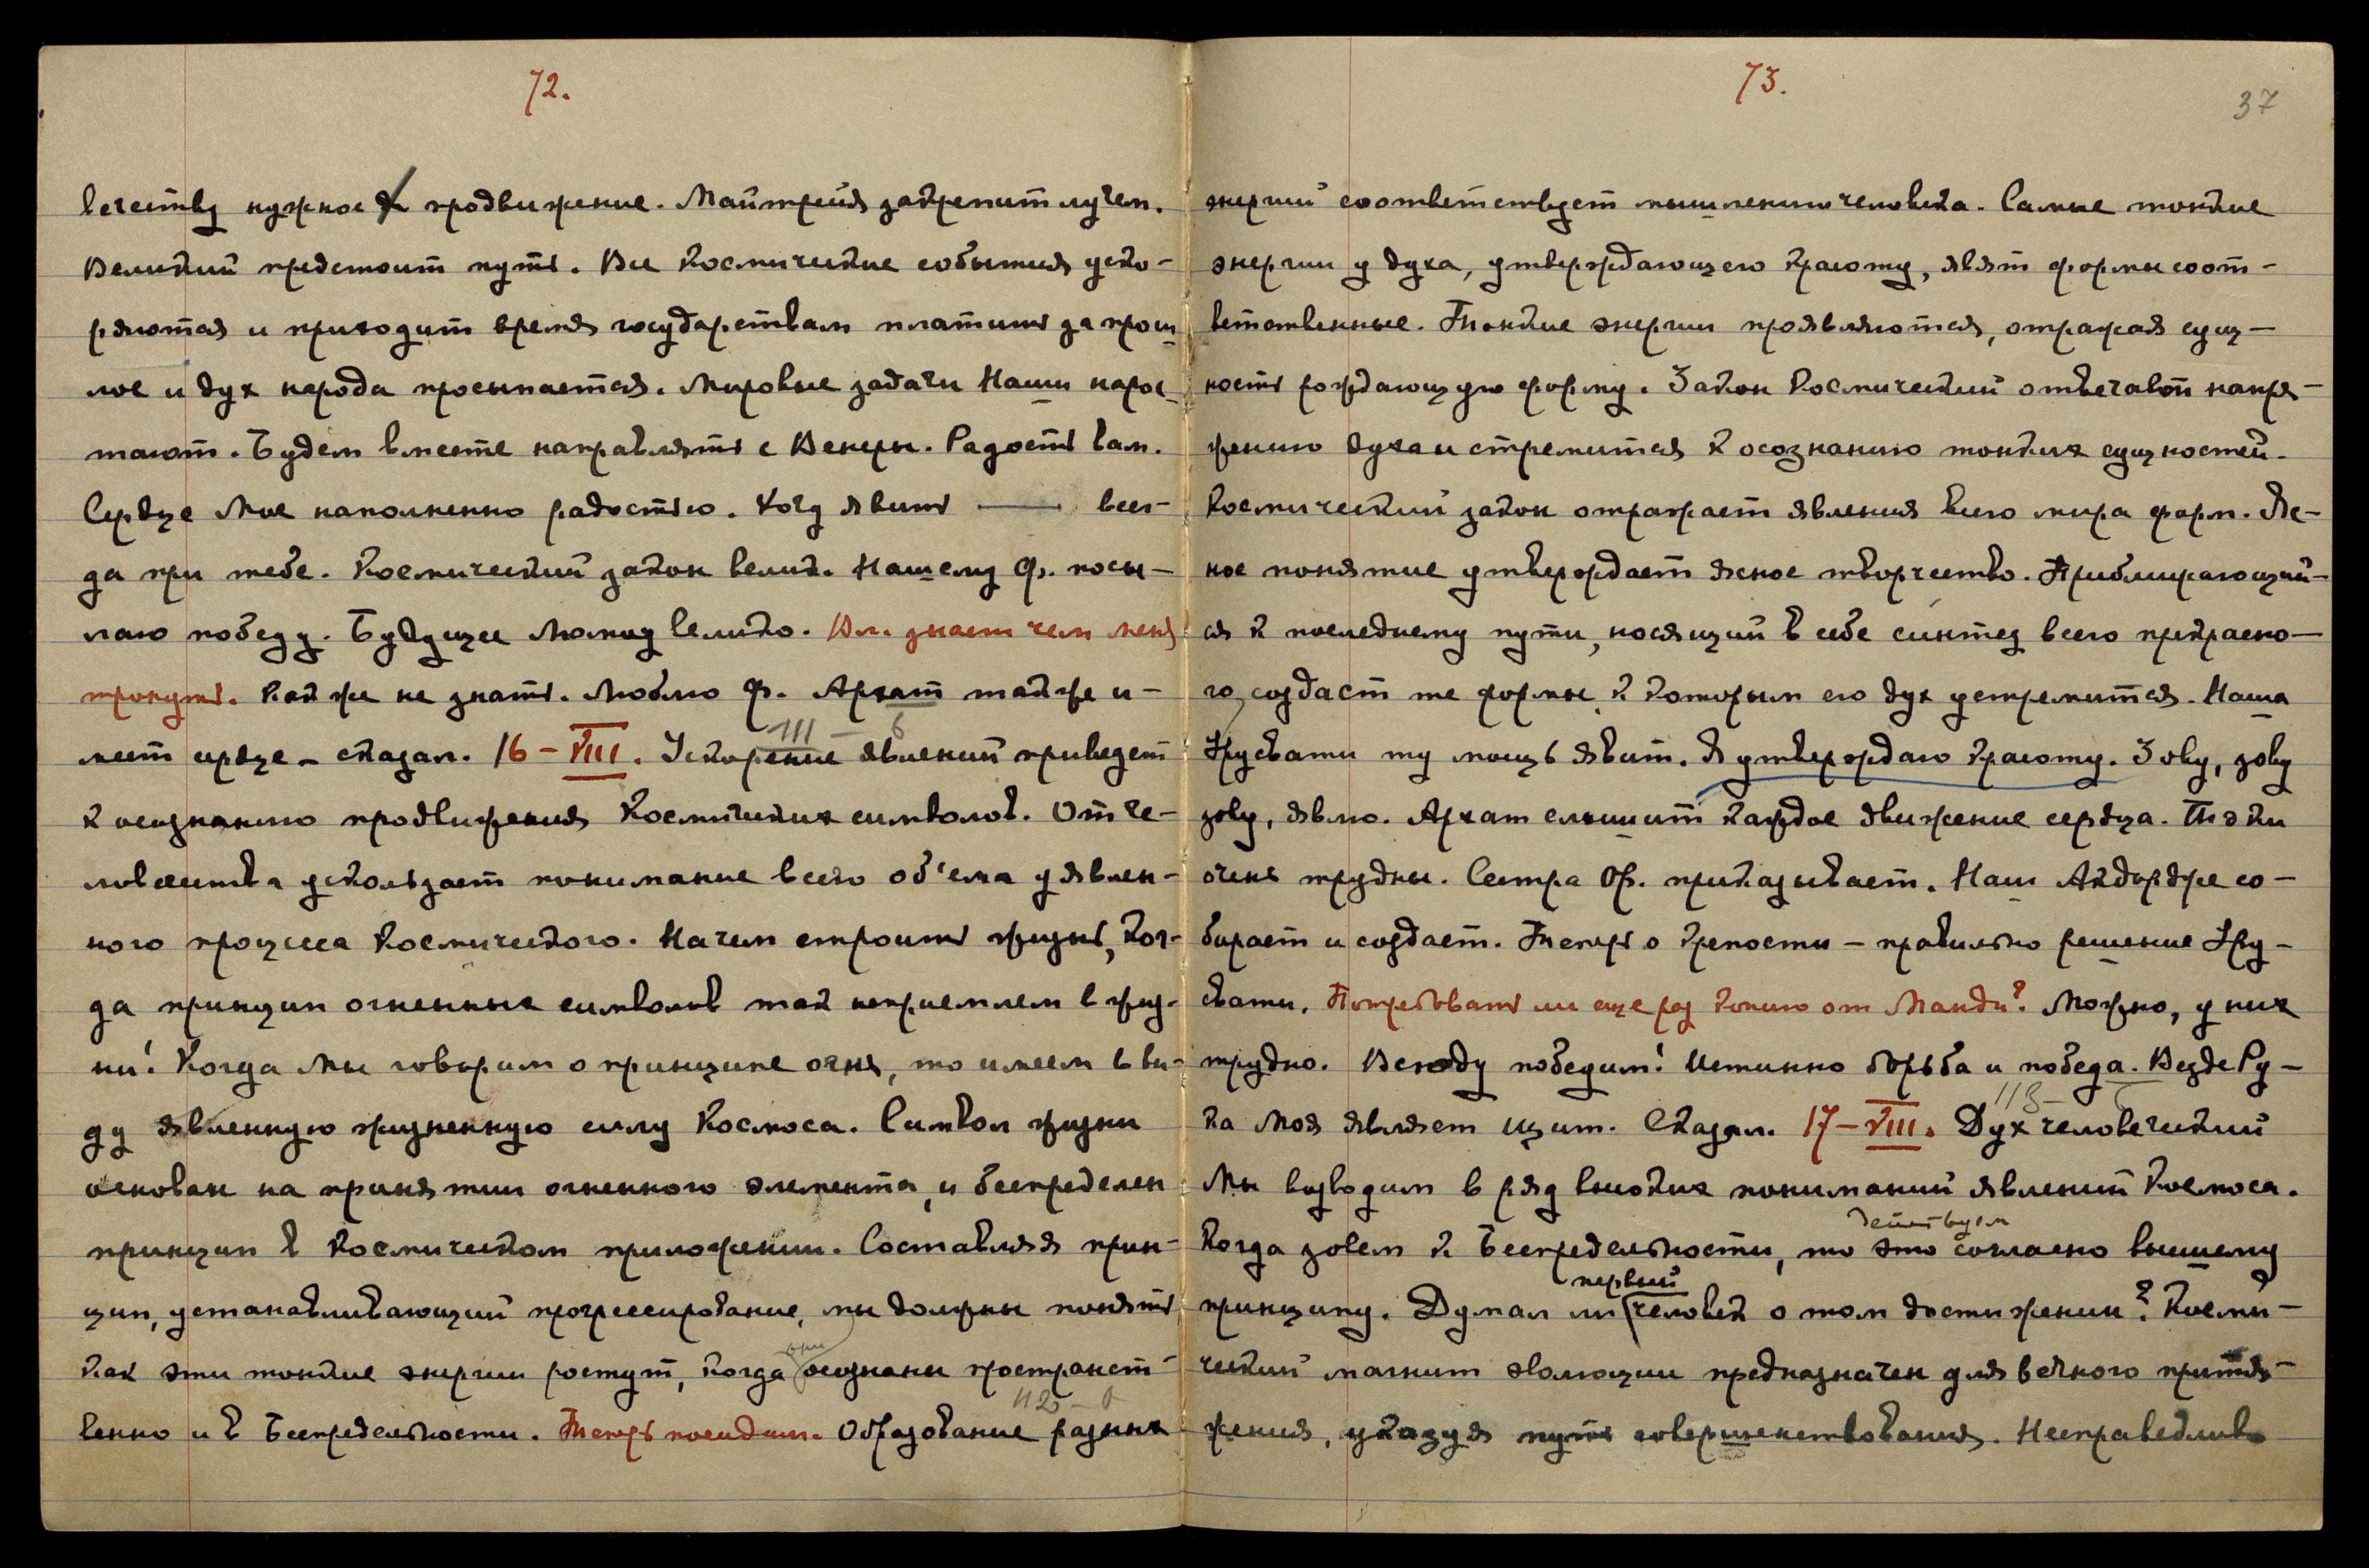 72.
вечеству нужное продвижение. Майтрейя закрепит лучем.
Великий предстоит путь. Все Космические события уско-
ряются и приходит время государствам платить за прош
лое и дух народа просыпается. Мировые задачи Наши нарос-
тают. Будем вместе направлять с Венеры. Радость вам.
Сердце Мое наполненно радостью. Хочу явить — всег-
да при тебе. Космический закон велик. Нашему Ф. посы-
лаю победу. Будущее Момоу велико. Вл. знает чем меня
тронуть. Как же не знать. Люблю Ф. Архат также и-
меет сердце – сказал. 16 – VIII. Ускорение явлений приведет
111 – б
к осознанию продвижения Космических символов. От че-
ловечества ускользает понимание всего об'ема уявлен-
ного процесса Космического. На чем строить жизнь, ког-
да принцип огненных символов так неприемлем в жиз-
ни! Когда Мы говорим о принципе огня, то имеем в ви-
ду явленную жизненную силу Космоса. Символ жизни
основан на принятии огненного элемента, и беспределен
принцип в Космическом приложении. Составляя прин-
цип, устанавливающий прогрессирование, мы должны понять
как эти тонкие энергии ростут, когда они осознаны пространст-
венно и в Беспредельности. Теперь посидим. Образование разных
112 – б
73.
37
энергий соответствует мышлению человека. Самые тонкие
энергии у духа, утверждающего красоту, явят формы соот-
ветственные. Тонкие энергии проявляются, отражая сущ-
ность рождающую форму. Закон Космический отвечает напря-
жению духа и стремится к осознанию тонких сущностей.
Космический закон отражает явления всего мира форм. Яс-
ное понятие утверждает ясное творчество. Приближающий-
ся к последнему пути, носящий в себе синтез всего прекрасно-
го, создаст те формы, к которым его дух устремится. Наша
Урусвати ту мощь явит. Я утверждаю красоту. Зову, зову
зову, явлю. Архат слышит каждое движение сердца. Токи
очень трудны. Сестра Ор. приказывает. Наш Акдордже со-
бирает и создает. Теперь о крепости – правильно решение Уру-
свати. Потребовать ли еще раз копию от Манди? Можно, у них
трудно. Всюду победим! Истинно борьба и победа. Везде Ру-
ка Моя являет щит. Сказал. 17 – VIII. Дух человеческий
113 – б
Мы возводим в ряд высоких пониманий явлений Космоса.
Когда зовем к Беспредельности, то это действуем согласно высшему
принципу. Думал ли первый человек о том достижении? Косми-
ческий магнит эволюции предназначен для вечного притя-
жения, указуя путь совершенствования. Несправедливо